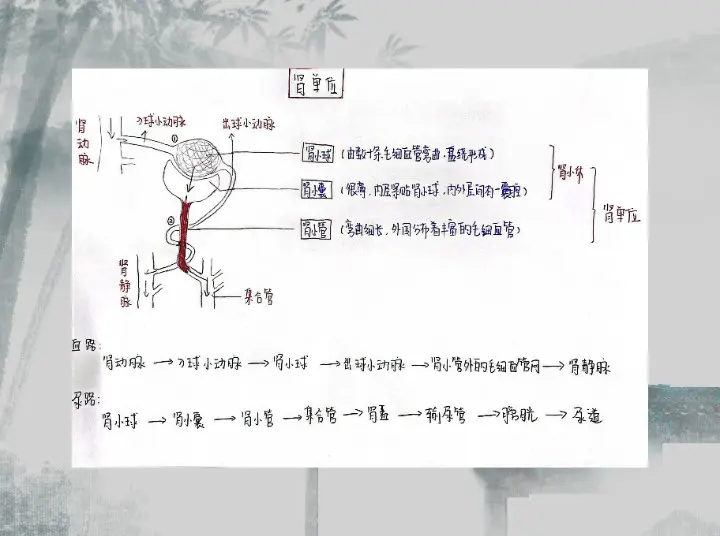 肾单位
肾动脉
入球小动脉
出球小动脉
①
肾小球 (由数十条毛细血管弯曲,盘绕形成)
肾小囊 (很薄,内层紧贴肾小球,内外层间有一囊腔)
肾小体
肾小管 (弯曲细长,外周分布着丰富的毛细血管)
肾单位
②
肾静脉
集合管
血路:
肾动脉 → 入球小动脉 → 肾小球 → 出球小动脉 → 肾小管外的毛细血管网 → 肾静脉
尿路:
肾小球 → 肾小囊 → 肾小管 → 集合管 → 肾盂 → 输尿管 → 膀胱 → 尿道